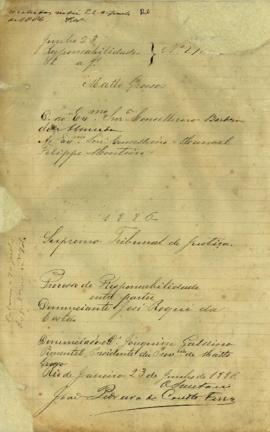 Junho 23
Responsabilidade
Matto Grosso
D. ao Exmo. Snr. Conselheiro Barbosa
de Almeida
Ao Exmo. Snr. Conselheiro Manoel
Filippe Monteiro
1886
Supremo Tribunal de Justiça
Processo de Responsabilidade
entre partes
Denunciante José Roque da
Denunciado Dr. Joaquim Galdino
Pimentel, Presidente da Provcia. de Matto
Grosso
Rio de Janeiro 23 de Junho de 1886
O Secretario
João Pedreira do Couto Ferraz